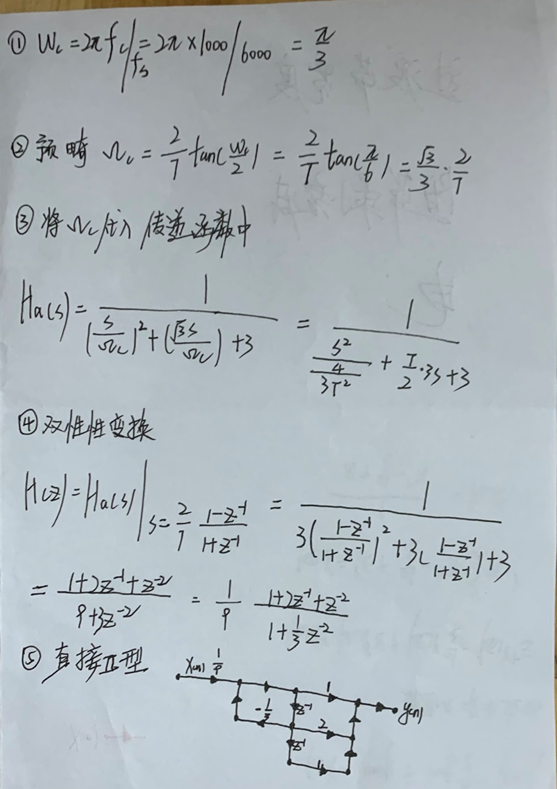 ① Wc=2πfc/fs=2π×1000/6000=π/3
② 预畸 Ωc=2/T tan(Wc/2)=2/T tan(π/6)=√3/3·2/T
③ 将Ωc代入传递函数中
Ha(s)=1/((s/Ωc)²+(√3s/Ωc)+3)=1/(s²/(4/3T²)+T/2·3s+3)
④ 双性性变换
H(z)=Ha(s)|s=2/T (1-z⁻¹)/(1+z⁻¹)=1/(3((1-z⁻¹)/(1+z⁻¹))²+3((1-z⁻¹)/(1+z⁻¹))+3)
=(1+2z⁻¹+z⁻²)/(9+3z⁻²)=1/9 (1+2z⁻¹+z⁻²)/(1+1/3z⁻²)
⑤ 直接Ⅱ型
x(n) 1/9 1
-1/3 z⁻¹ 2 y(n)
z⁻¹ 1